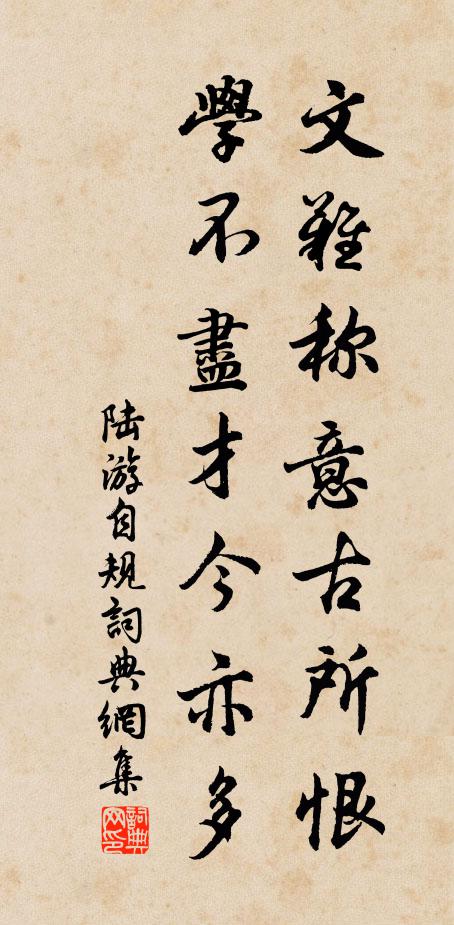 文難称意古所恨
學不盡才今亦多
陆游自规詞典網集
詞典
网印